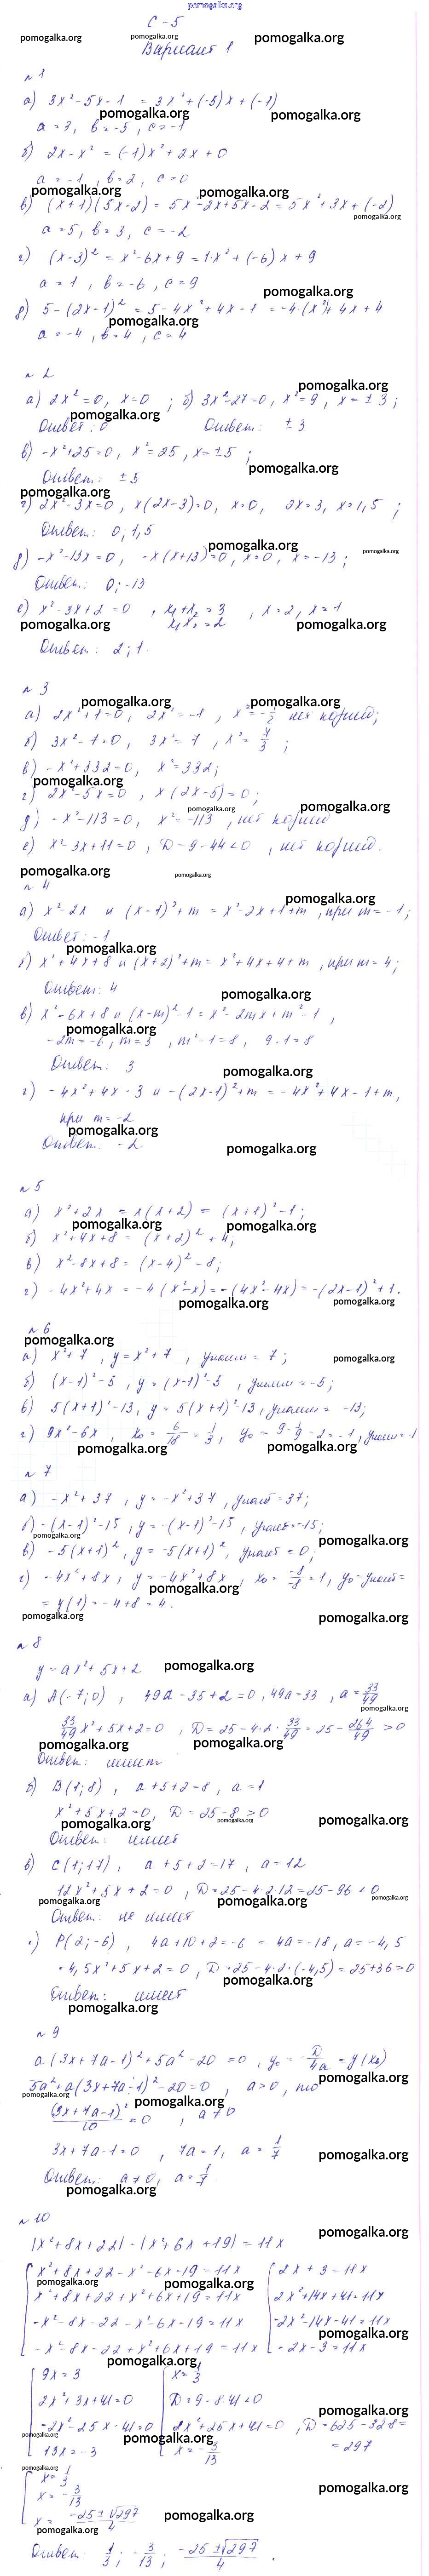 pomogalka.org
С-5
Вариант 1
№1
а) 3x² - 5x - 1 = 3x² + (-5)x + (-1)
a = 3, b = -5, c = -1
б) 2x - x² = (-1)x² + 2x + 0
a = -1, b = 2, c = 0
в) (x+1)(5x-2) = 5x² - 2x + 5x - 2 = 5x² + 3x + (-2)
a = 5, b = 3, c = -2
г) (x-3)² = x² - 6x + 9 = 1·x² + (-6)x + 9
a = 1, b = -6, c = 9
д) 5 - (2x-1)² = 5 - 4x² + 4x - 1 = -4·(x²) + 4x + 4
a = -4, b = 4, c = 4
№2
а) 2x² = 0, x = 0 ; б) 3x² - 27 = 0, x² = 9, x = ± 3 ;
Ответ: 0 Ответ: ± 3
в) -x² + 25 = 0, x² = 25, x = ± 5 ;
Ответ: ± 5
г) 2x² - 3x = 0, x(2x-3) = 0, x = 0, 2x = 3, x = 1,5 ;
Ответ: 0; 1,5
д) -x² - 13x = 0, -x(x+13) = 0, x = 0, x = -13 ;
Ответ: 0; -13
е) x² - 3x + 2 = 0, x₁ + x₂ = 3, x = 2, x = 1
x₁x₂ = 2
Ответ: 2; 1
№3
а) 2x² + 1 = 0, 2x² = -1, x² = -1/2 нет корней;
б) 3x² - 7 = 0, 3x² = 7, x² = 7/3 ;
в) -x² + 332 = 0, x² = 332;
г) 2x² - 5x = 0, x(2x-5) = 0;
д) -x² - 113 = 0, x² = -113, нет корней
е) x² - 3x + 11 = 0, D = 9 - 44 < 0, нет корней.
№4
а) x² - 2x и (x-1)² + m = x² - 2x + 1 + m, при m = -1;
Ответ: -1
б) x² + 4x + 8 и (x+2)² + m = x² + 4x + 4 + m, при m = 4;
Ответ: 4
в) x² - 6x + 8 и (x-m)² - 1 = x² - 2mx + m² - 1,
-2m = -6, m = 3, m² - 1 = 8, 9 - 1 = 8
Ответ: 3
г) -4x² + 4x - 3 и -(2x-1)² + m = -4x² + 4x - 1 + m,
при m = -2
Ответ: -2
№5
а) x² + 2x = x(x+2) = (x+1)² - 1;
б) x² + 4x + 8 = (x+2)² + 4;
в) x² - 8x + 8 = (x-4)² - 8;
г) -4x² + 4x = -4(x²-x) = -(4x²-4x) = -(2x-1)² + 1.
№6
а) x² + 7, y = x² + 7, yнаим = 7;
б) (x-1)² - 5, y = (x-1)² - 5, yнаим = -5;
в) 5(x+1)² - 13, y = 5(x+1)² - 13, yнаим = -13;
г) 9x² - 6x, x₀ = 6/18 = 1/3, y₀ = 9·1/9 - 2 = -1, yнаим = -1
№7
а) -x² + 37, y = -x² + 37, yнаиб = 37;
б) -(x-1)² - 15, y = -(x-1)² - 15, yнаиб = -15;
в) -5(x+1)², y = -5(x+1)², yнаиб = 0;
г) -4x² + 8x, y = -4x² + 8x, x₀ = -8/-8 = 1, y₀ = yнаиб =
= y(1) = -4 + 8 = 4.
№8
y = ax² + 5x + 2
а) A(-7; 0), 49a - 35 + 2 = 0, 49a = 33, a = 33/49
33/49 x² + 5x + 2 = 0, D = 25 - 4·2·33/49 = 25 - 264/49 > 0
Ответ: имеет
б) B(1; 8), a + 5 + 2 = 8, a = 1
x² + 5x + 2 = 0, D = 25 - 8 > 0
Ответ: имеет
в) C(1; 17), a + 5 + 2 = 17, a = 12
12x² + 5x + 2 = 0, D = 25 - 4·2·12 = 25 - 96 < 0
Ответ: не имеет
г) P(2; -6), 4a + 10 + 2 = -6 - 4a = -18, a = -4,5
-4,5x² + 5x + 2 = 0, D = 25 - 4·2·(-4,5) = 25 + 36 > 0
Ответ: имеет
№9
a(3x+7a-1)² + 5a² - 20 = 0, y₀ = -D/4a = y(x₀)
5a² + a(3x+7a-1)² - 20 = 0, a > 0, то
(3x+7a-1)²/10 = 0, a ≠ 0
3x + 7a - 1 = 0, 7a = 1, a = 1/7
Ответ: a ≠ 0, a = 1/7
№10
|x² + 8x + 22| - |x² + 6x + 19| = 11x
x² + 8x + 22 - x² - 6x - 19 = 11x 2x + 3 = 11x
x² + 8x + 22 + x² + 6x + 19 = 11x 2x² + 14x + 41 = 11x
-x² - 8x - 22 - x² - 6x - 19 = 11x -2x² - 14x - 41 = 11x
-x² - 8x - 22 + x² + 6x + 19 = 11x -2x - 3 = 11x
9x = 3 x = 1/3
2x² + 3x + 41 = 0 D = 9 - 8·41 < 0
-2x² - 25x - 41 = 0 2x² + 25x + 41 = 0, D = 625 - 328 =
13x = -3 x = -3/13 = 297
x = 1/3
x = -3/13
x = -25 ± √297 / 4
Ответ: 1/3; -3/13; -25 ± √297 / 4.